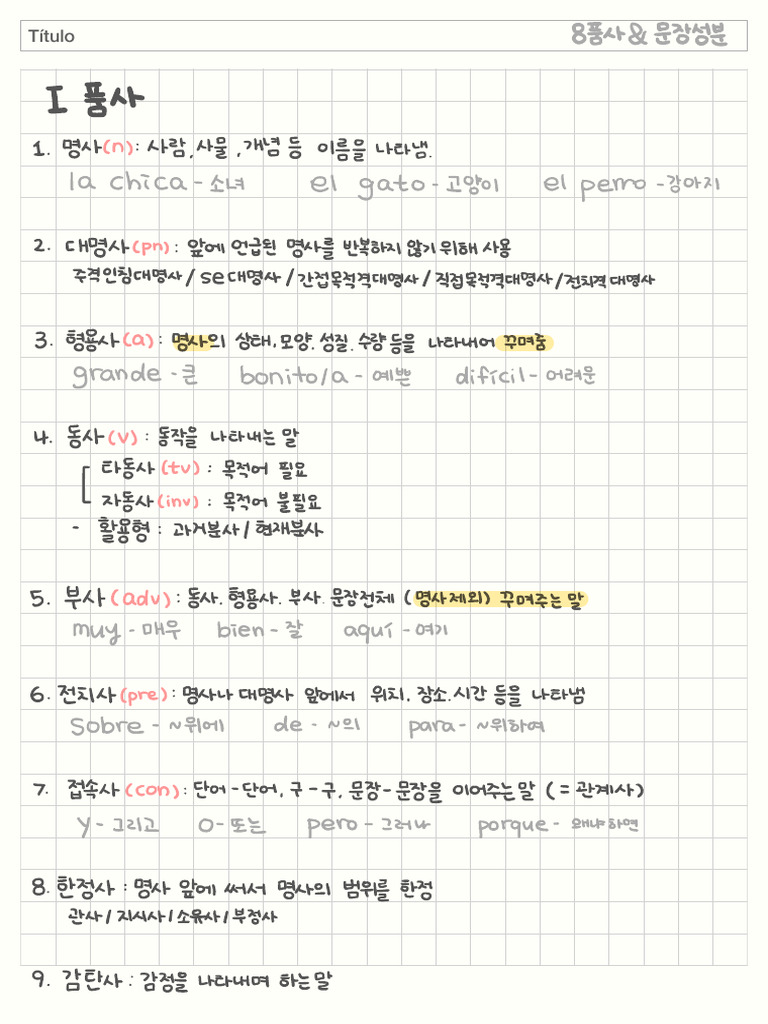 Título
8품사 & 문장성분
I 품사
1. 명사(n): 사람, 사물, 개념 등 이름을 나타냄.
la chica - 소녀 el gato - 고양이 el perro - 강아지
2. 대명사(pn): 앞에 언급된 명사를 반복하지 않기 위해 사용
주격인칭대명사 / se대명사 / 간접목적격대명사 / 직접목적격대명사 / 전치격 대명사
3. 형용사(a): 명사의 상태, 모양. 성질. 수량 등을 나타내어 꾸며줌
grande - 큰 bonito/a - 예쁜 difícil - 어려운
4. 동사(v): 동작을 나타내는 말
타동사(tv): 목적어 필요
자동사(inv): 목적어 불필요
- 활용형: 과거분사 / 현재분사
5. 부사(adv): 동사. 형용사. 부사. 문장전체 (명사제외) 꾸며주는 말
muy - 매우 bien - 잘 aquí - 여기
6. 전치사(pre): 명사나 대명사 앞에서 위치, 장소. 시간 등을 나타냄
sobre - ~위에 de - ~의 para - ~위하여
7. 접속사(con): 단어-단어, 구-구, 문장-문장을 이어주는 말 (= 관계사)
y - 그리고 o - 또는 pero - 그러나 porque - 왜냐하면
8. 한정사: 명사 앞에 써서 명사의 범위를 한정
관사 / 지시사 / 소유사 / 부정사
9. 감탄사: 감정을 나타내며 하는 말